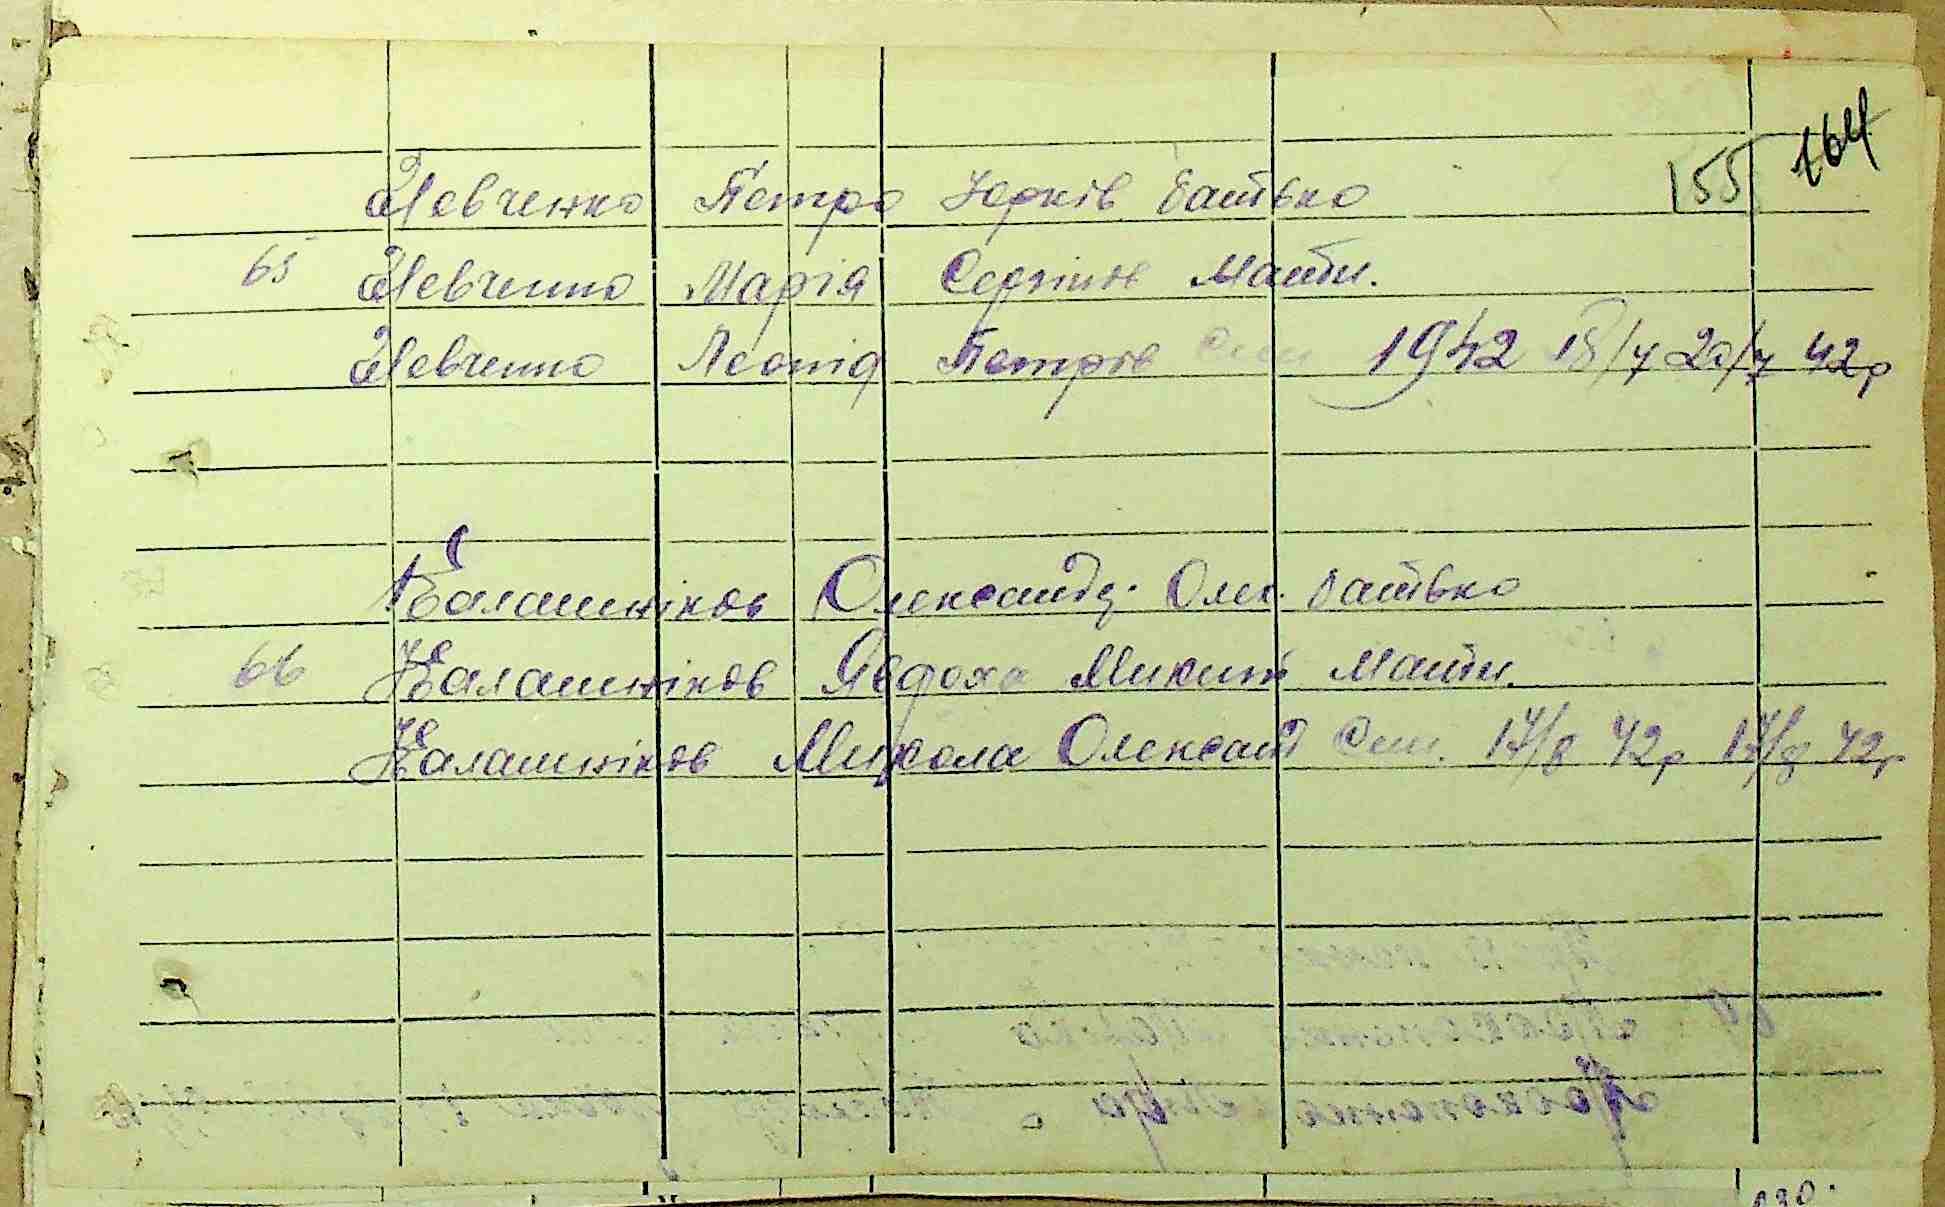 155 164
Шевченко Петро Юрків батько
65 Шевченко Марія Сергіїв Мати.
Шевченко Леонід Петров Син 1942 18/7 20/7 42р
Калашніков Олександр. Олек. батько
66 Калашніков Явдоха Микит Мати.
Калашніков Микола Олександ Син. 17/8 42р 17/8 42р